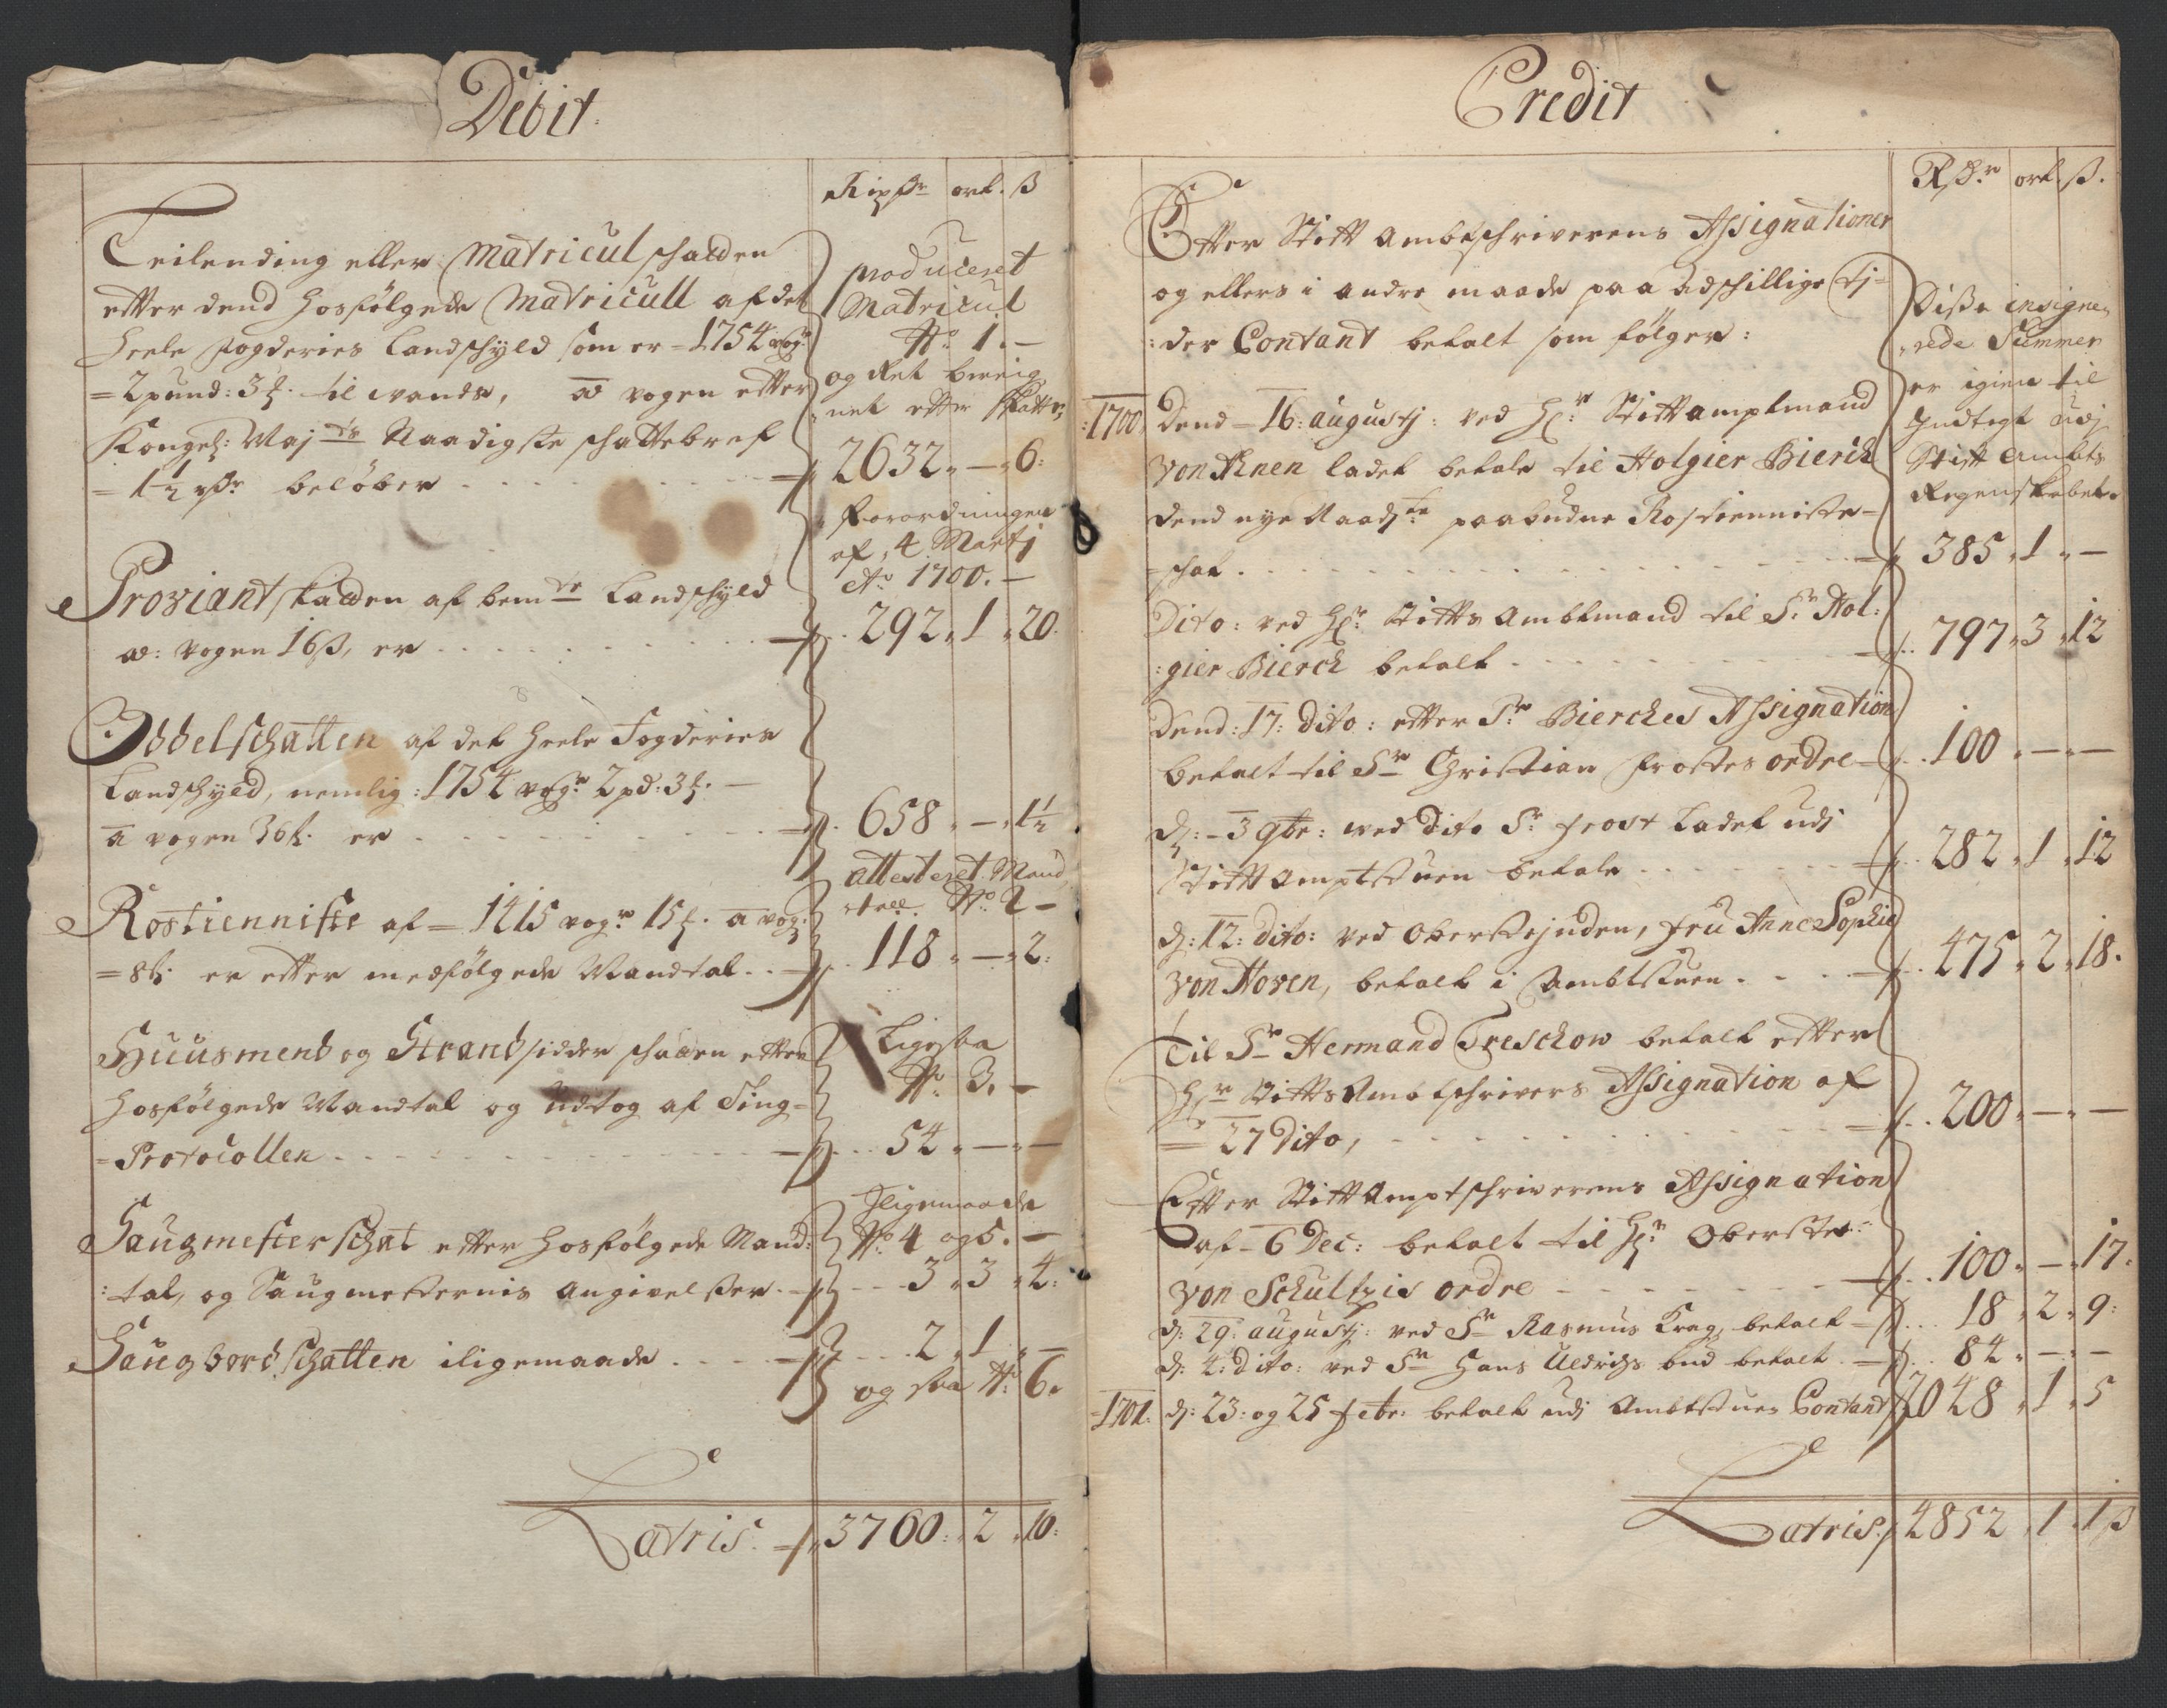 Debit.
Rixdr ort. ß
Teilending eller Matricul schatten
efter dend hosfölgende Matricull af det
heele fogderies Landschyld som er = 1754 voger
= 2 pund: 3 ℔. til vands, a vogen efter
Kongel: Maj ts Naadigste schattebref
= 1½ rdr belöber
produceret
Matricul
No 1. –
og Ret bereig
net efter skatte
2632 „ – „ 6:
forordningen
af, 4 Martj
Ao 1700. –
Proviant skatten af bem te Landschyld
a: vogen 16 ß, er
292 „ 1 „ 20.
Obbelschatten af det heele Fogderies
Landschyld, nemlig: 1754 voger 2 pd: 3 ℔. –
a vogen 36 ß. er
658 „ – „ 1½
Rostienniste af = 1415 voger 15 ℔. a vog:
= 8 ß. er efter medfölgende Mandtal
attesteret Mand
tall No 2 –
118 „ – „ 2:
Huusmend og Strandsidder schatten efter
hosfölgende Mandtal og udtog af Ting=
= Protocollen
Ligesaa
No 3. –
54 „ – „ –
Saugmester schat efter hosfölgende Mand:
: tal, og Saugmesternis angivelser
Iligemaade
No 4 og 5. –
3 „ 3 „ 4:
Saugbord schatten iligemaade
2 „ 1 „ –
og saa No 6.
Latris. 3760: 2 „ 10:
Credit
Rdr ort. ß.
Efter Stift Ambtschriverens Assignationer
og ellers i andre maade paa adschillige tj=
: der Contant betalt som fölger:
Disse insigne
rede Summer
er igien til
Indtegt udj
Stift Ambts
Regenskabet.
1700. Dend = 16: augustj: ved Hr: Stiftamptmand
von Ahnen ladet betale til Holgier Bierck
dend nye Naads te paabudne Rostienniste=
schat 385 „ 1 „ –
Dito: ved Hr: Stifts Ambtmand til Sr. Hol:
: gier Bierck betalt 797 „ 3 „ 12
Dend: 17: dito: efter Sr Bierckes Assignation
betalt til Sr Christian Frostes ordre 100 „ – „ –
d: = 3 9br: ved dito Sr. Frost Ladet udj
Stiftamptstuen betale 282 „ 1 „ 12
d: 12: dito: ved Oberstinden, fru Anne Sophie
von Hoven, betalt i Ambtstuen 475 „ 2 „ 18.
Til Sr Hermand Treschow betalt efter
Hr Stifts Ambtschrivers Assignation af
= 27 dito, 200 „ – „ –
Efter Stiftamptschriverens Assignation
af = 6 Dec: betalt til Hr Oberster
von Schultzis ordre 100 „ – „ 17:
d: 29: augustj: ved Sr Rasmus Krag betalt 18 „ 2 „ 9:
d: 4: dito: ved Sr Hans Uldrichs bud betalt 84 „ – „ –
1701. d: 23: og 25 febr: betalt udj Ambtstuen Contant 2048 „ 1 „ 5
Latris 4852 „ 1 „ 1 ß